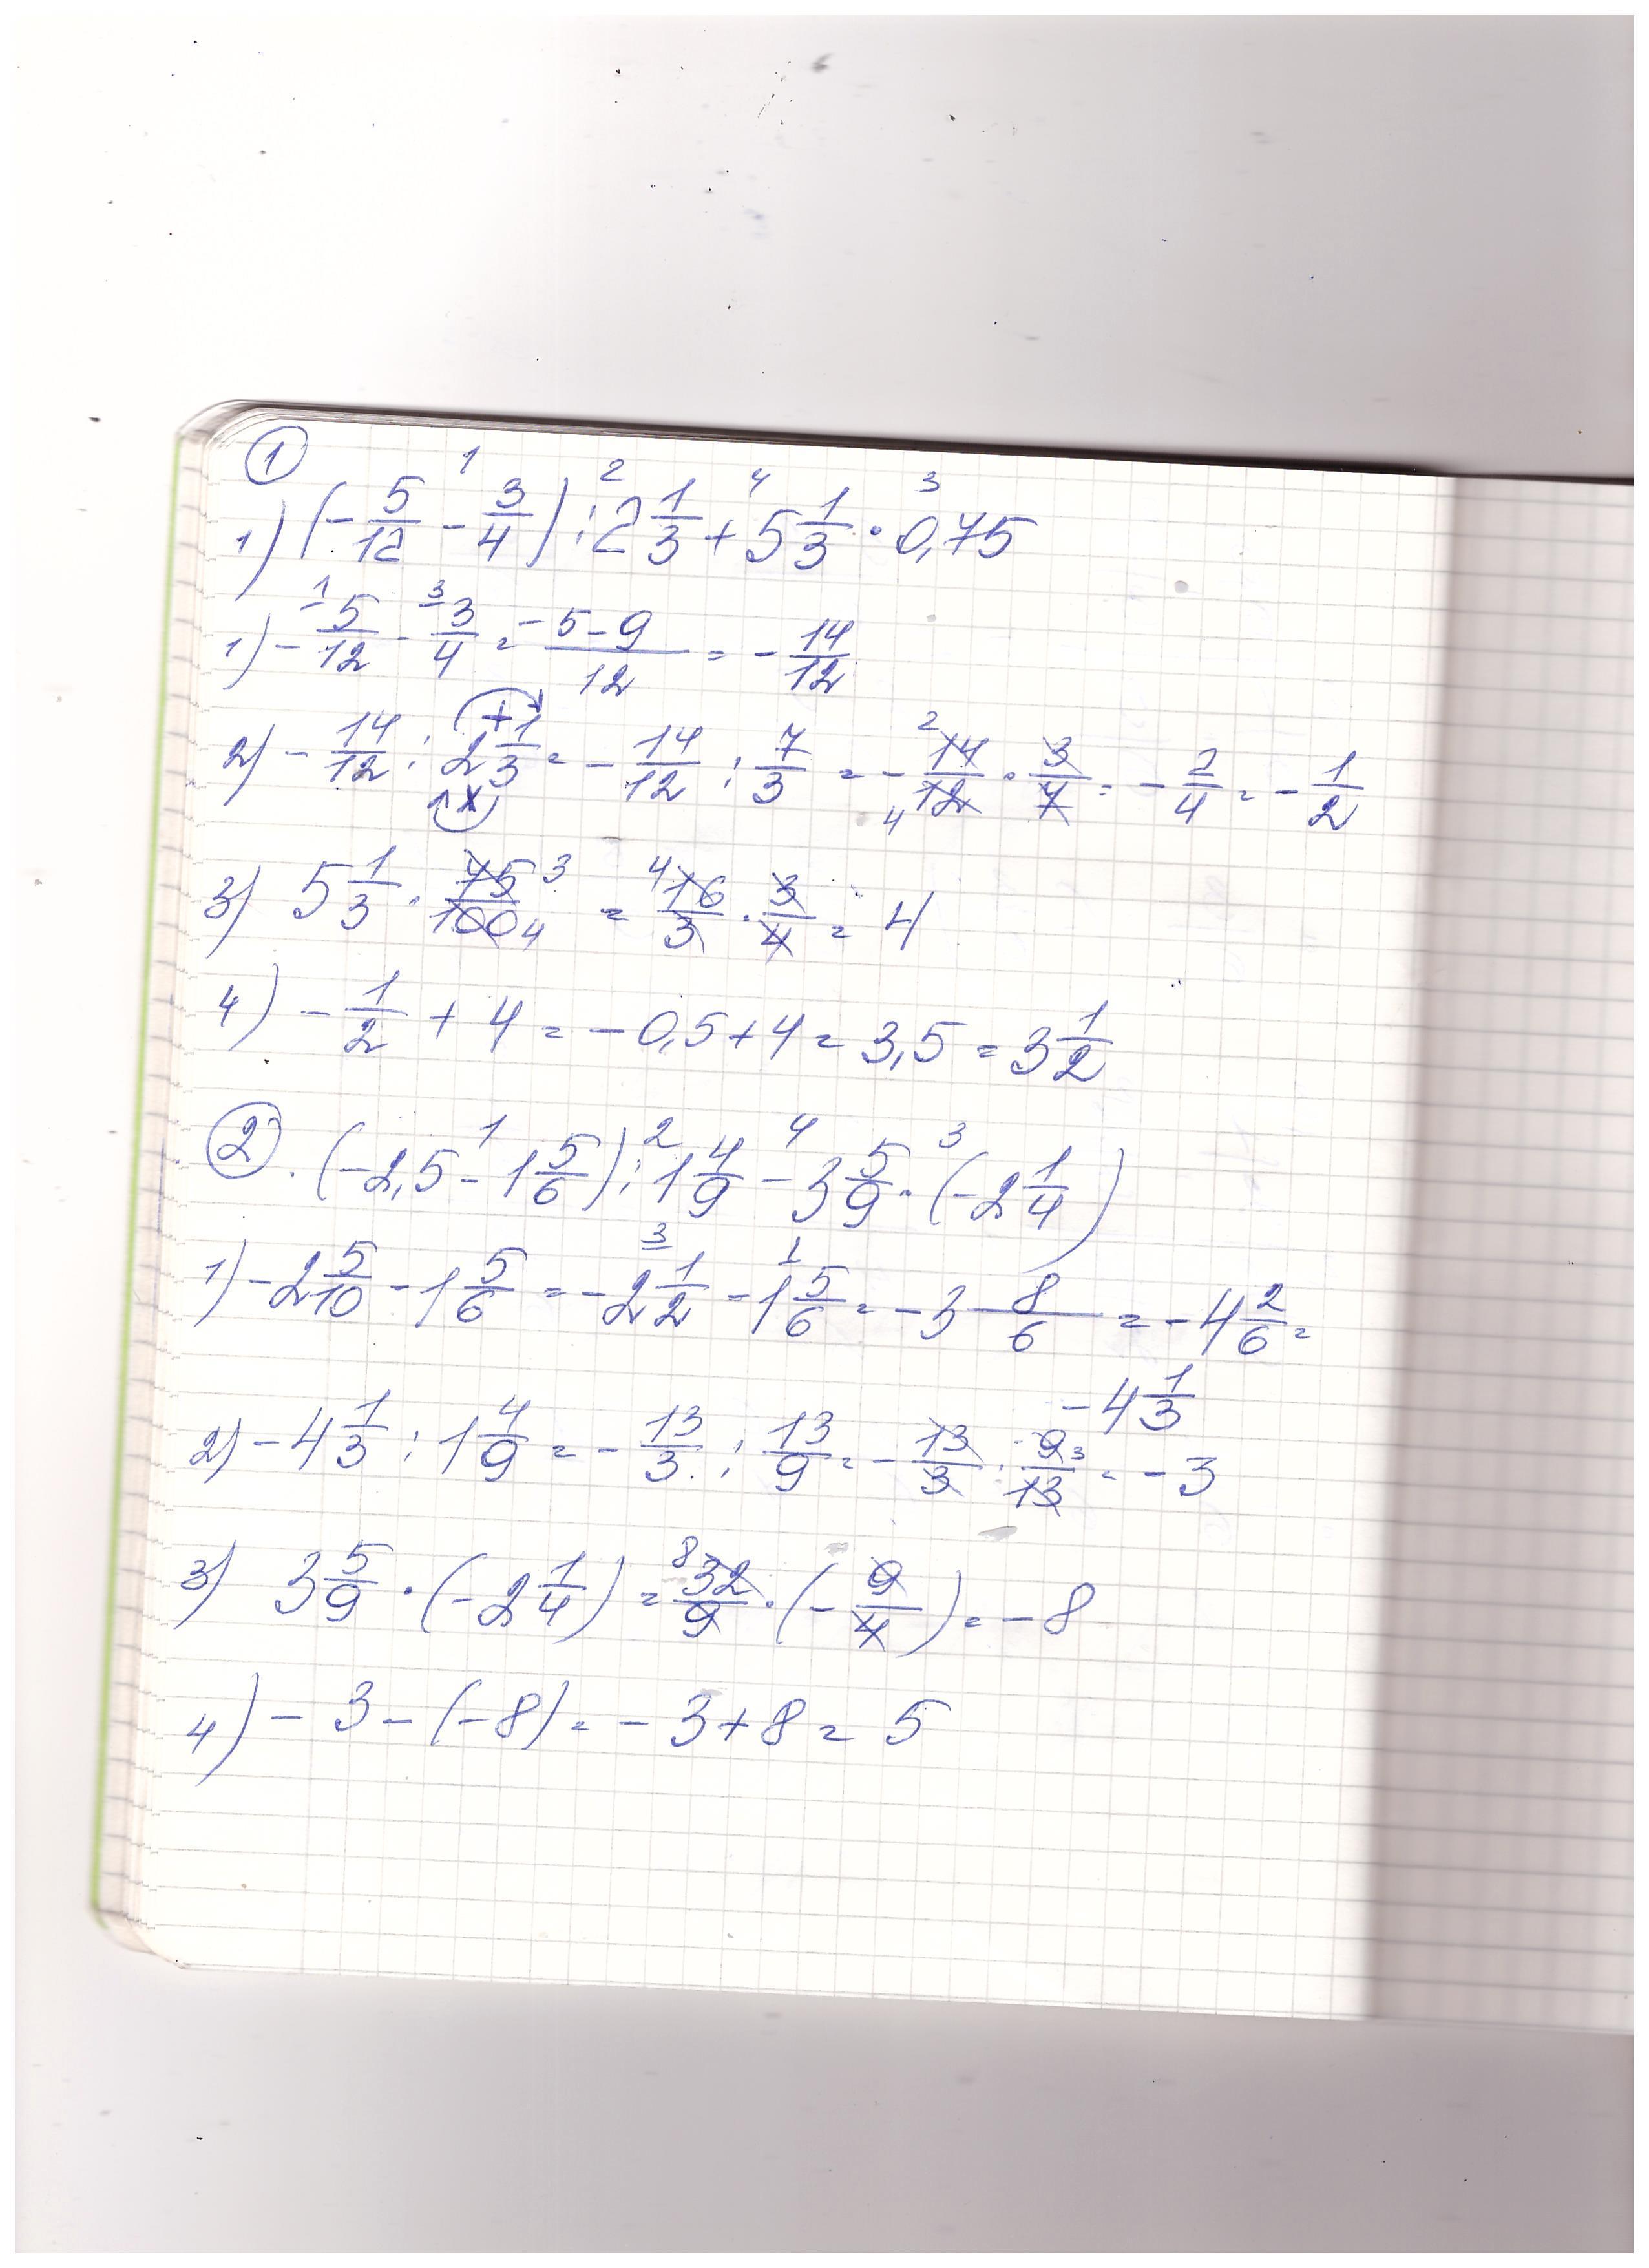 ①
1) (-5/12 - 3/4) : 2 1/3 + 5 1/3 · 0,75
1) -5/12 - 3/4 = (-5-9)/12 = -14/12
2) -14/12 : 2 1/3 = -14/12 : 7/3 = -14/12 · 3/7 = -2/4 = -1/2
3) 5 1/3 · 75/100 = 16/3 · 3/4 = 4
4) -1/2 + 4 = -0,5+4 = 3,5 = 3 1/2
②. (-2,5 - 1 5/6) : 1 4/9 - 3 5/9 · (-2 1/4)
1) -2 5/10 - 1 5/6 = -2 1/2 - 1 5/6 = -3 8/6 = -4 2/6 =
-4 1/3
2) -4 1/3 : 1 4/9 = -13/3 : 13/9 = -13/3 · 9/13 = -3
3) 3 5/9 · (-2 1/4) = 32/9 · (-9/4) = -8
4) -3 - (-8) = -3+8 = 5